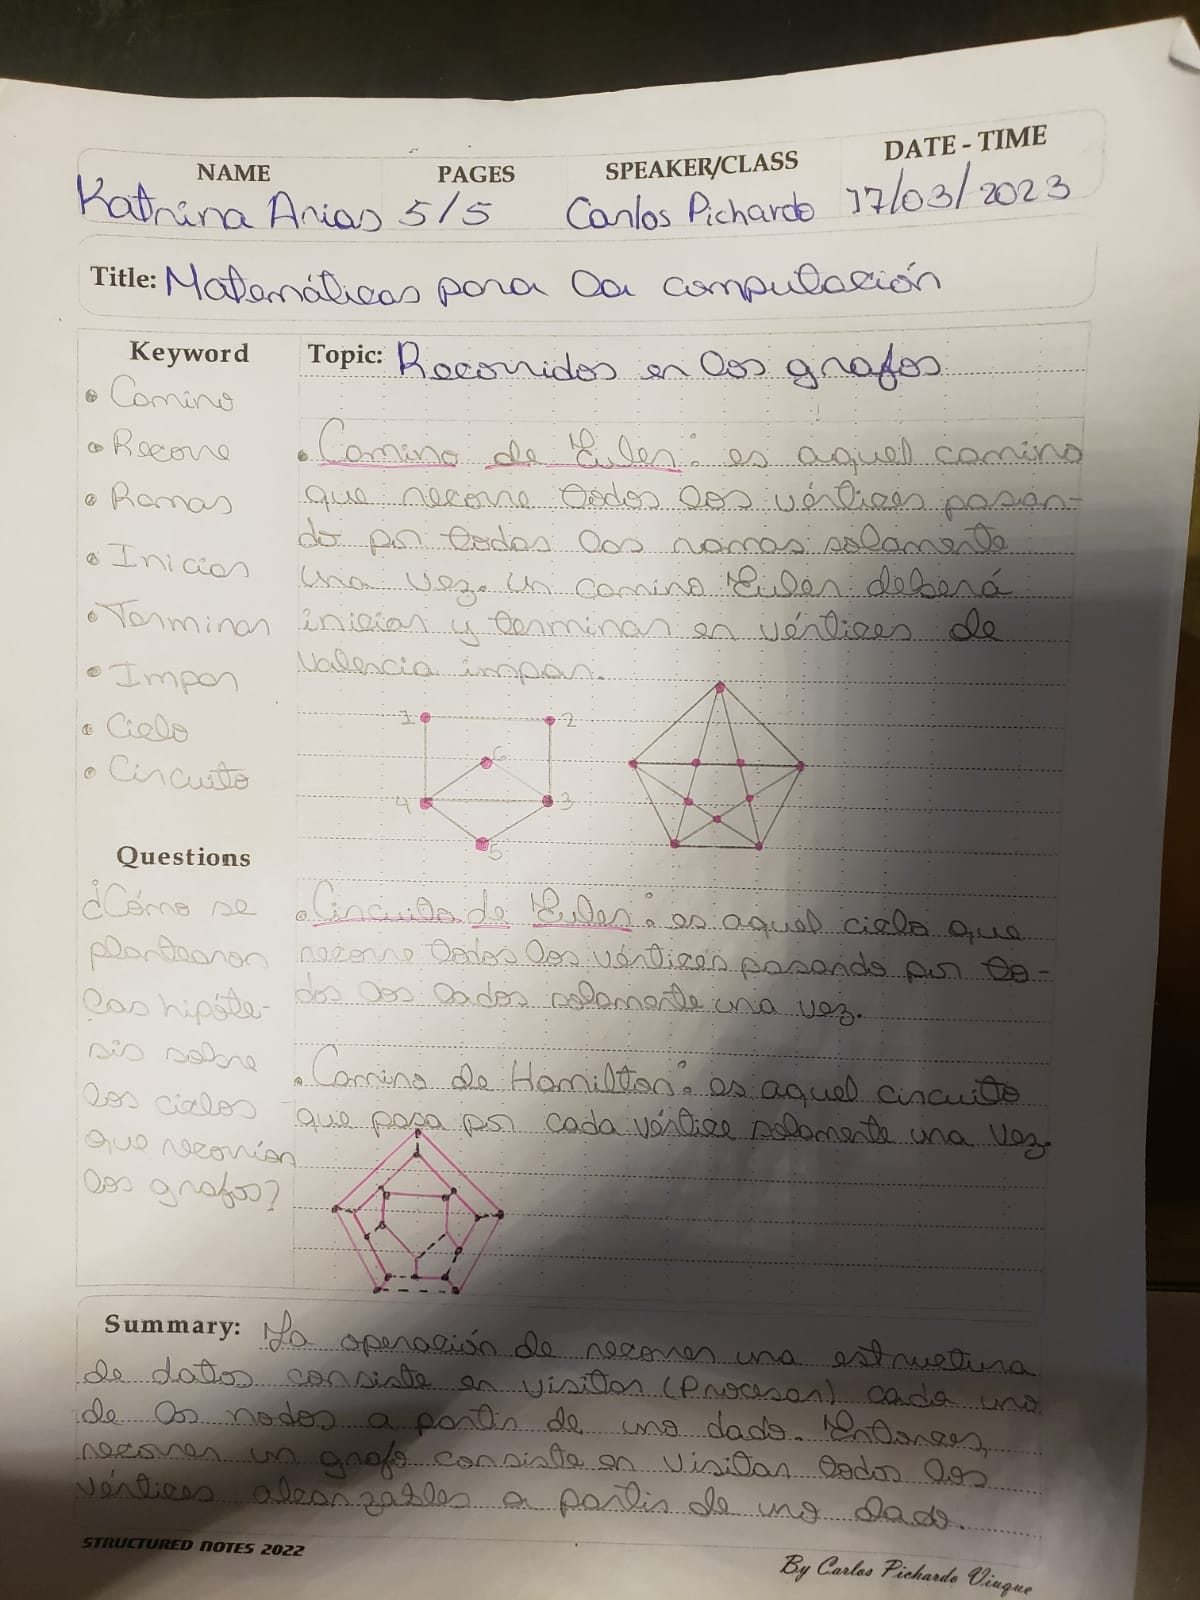 NAME PAGES SPEAKER/CLASS DATE - TIME
Katrina Arias 5/5 Carlos Pichardo 17/03/2023
Title: Matemáticas para la computación
Keyword
• Camino
• Recorre
• Ramas
• Inicias
• Terminas
• Impar
• Ciclo
• Circuito
Questions
¿Cómo se
plantearon
las hipóte-
sis sobre
los ciclos
que recorrían
los grafos?
Topic: Recorridos en los grafos
• Camino de Euler: es aquel camino
que recorre todos los vértices pasan-
do por todas las ramas solamente
una vez. Un camino Euler deberá
iniciar y terminar en vértices de
valencia impar.
1 2
6
4 3
5
• Circuito de Euler: es aquel ciclo que
recorre todos los vértices pasando por to-
dos los lados solamente una vez.
• Camino de Hamilton: es aquel circuito
que pasa por cada vértice solamente una vez.
Summary: La operación de recorrer una estructura
de datos consiste en visitar (Procesar) cada uno
de los nodos a partir de uno dado. Entonces,
recorrer un grafo consiste en visitar todos los
vértices alcanzables a partir de uno dado.
STRUCTURED NOTES 2022
By Carlos Pichardo Viuque